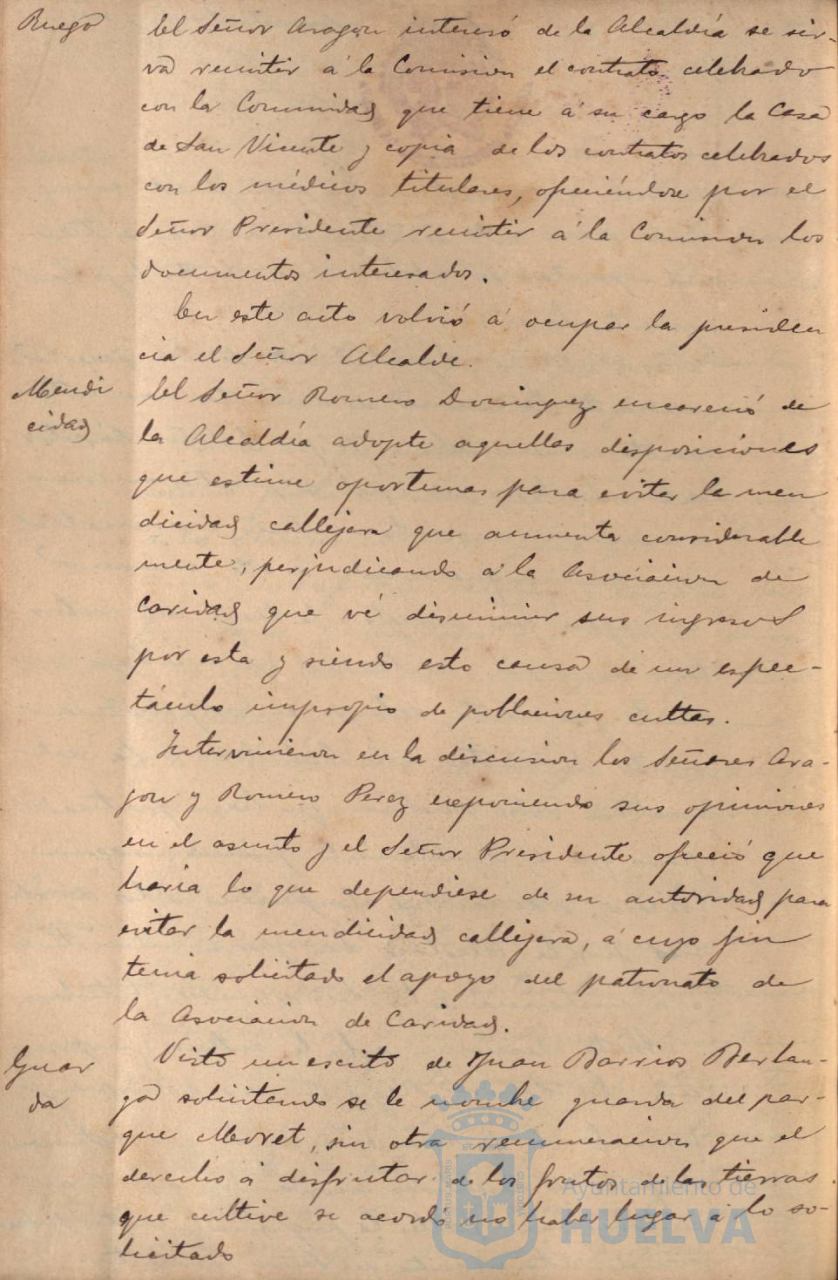 Ruego
El Señor Aragon interesó de la Alcaldía se sir-
va remitir á la Comision el contrato celebrado
con la Comunidad que tiene á su cargo la Casa
de San Vicente y copia de los contratos celebrados
con los médicos titulares, ofreciéndose por el
Señor Presidente remitir á la Comision los
documentos interesados.
En este acto volvió á ocupar la presiden
cia el Señor Alcalde.
Mendi
cidad
El Señor Romero Dominguez encareció de
la Alcaldía adopte aquellas disposiciones
que estime oportunas para evitar la men
dicidad callejera que aumenta considerable
mente, perjudicando á la Asociacion de
Caridad que vé disminuir sus ingresos
por esta y siendo esto causa de un espec-
táculo impropio de poblaciones cultas.
Intervinieron en la discusion los Señores Ara-
gon y Romero Perez exponiendo sus opiniones
en el asunto y el Señor Presidente ofreció que
haria lo que dependiese de su autoridad para
evitar la mendicidad callejera, á cuyo fin
tenia solicitado el apoyo del patronato de
la Asociacion de Caridad.
Guar
da
Visto un escrito de Juan Barrios Berlan-
ga solicitando se le nombre guarda del par-
que Moret, sin otra remuneracion que el
derecho á disfrutar de los frutos de las tierras
que cultive se acordó no haber lugar á lo so-
licitado
Ayuntamiento de
HUELVA